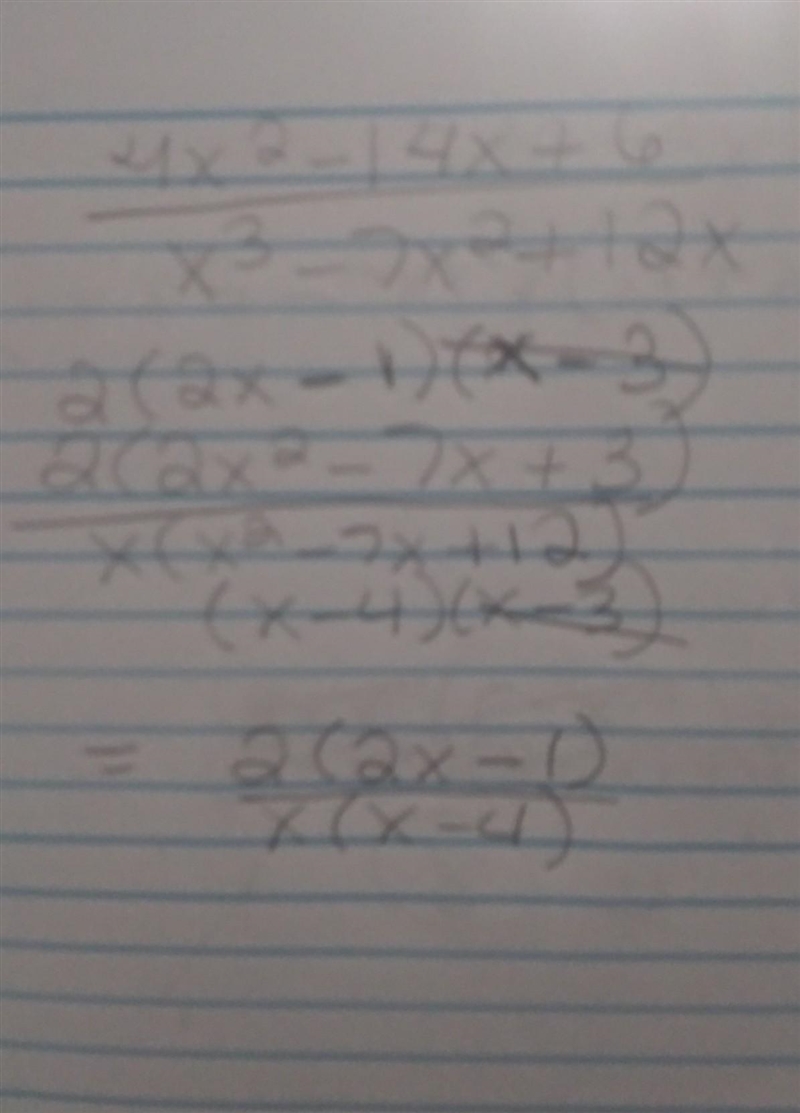 4x² - 14x + 6
x³ - 7x² + 12x
2(2x - 1)(x - 3)
2(2x² - 7x + 3)
x(x² - 7x + 12)
(x - 4)(x - 3)
= 2(2x - 1)
x(x - 4)